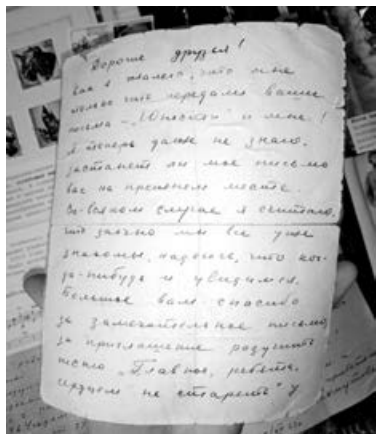 Дорогие друзья!
Как я жалею, что мне
только что передали ваши
письма – "Юности" и мне!
Я теперь даже не знаю,
застанет ли мое письмо
вас на прежнем месте.
Во всяком случае я считаю,
что заочно мы все уже
знакомы, надеюсь, что ког-
да-нибудь и увидимся.
Большое вам спасибо
за замечательное письмо,
за приглашение разучить
песню "Главное, ребята,
сердцем не стареть" у